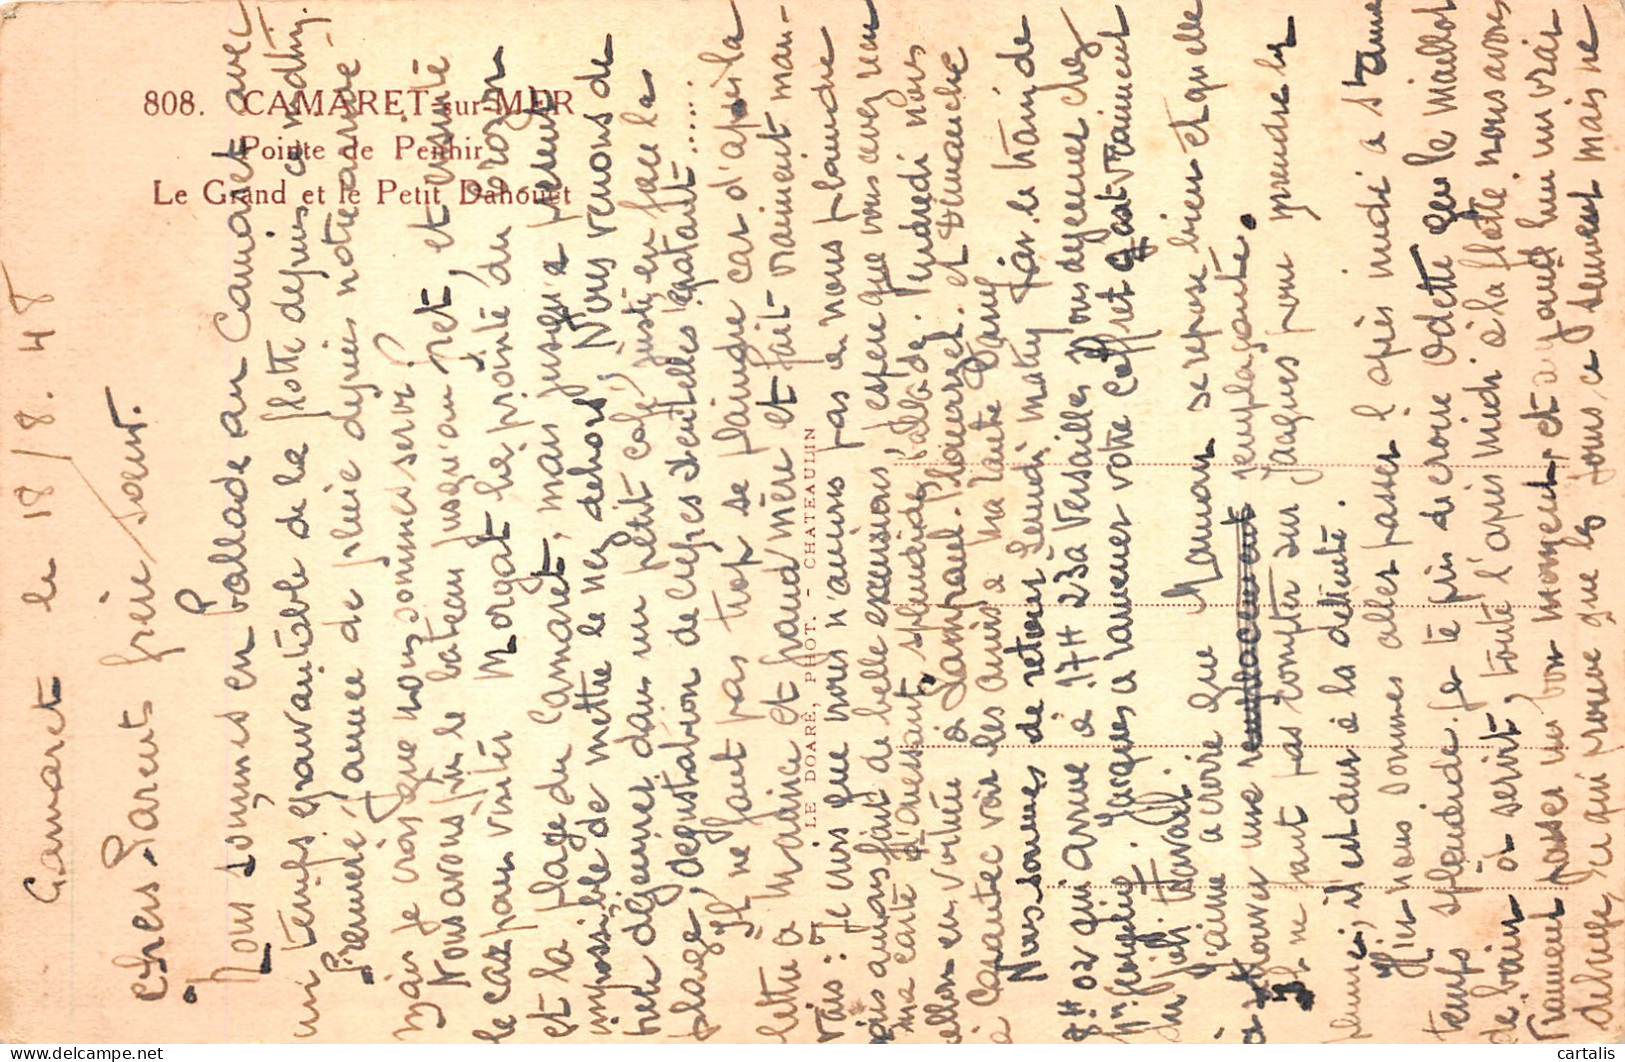 808. CAMARET-sur-MER
Pointe de Penhir
Le Grand et le Petit Dahouët
LE DOARÉ, PHOT. - CHATEAULIN
Camaret le 18/8.48
Chers Parent frère/sœur.
Nous sommes en ballade au Camaret avec
un temps épouvantable de la flotte depuis ce matin,
Première journée de pluie depuis notre arrivée
mais je crois que nous sommes servi?
Nous avons pris le bateau jusqu'au fret, et ensuite
le car pour visité Morgat la pointe du crozon
et la plage du Camaret, mais jusqu'a présent
impossible de mettre le nez dehors, Nous venons de
déjeuner dans un petit café, juste en face la
plage, dégustation de crêpes dentelles épatant......
Il ne faut pas trop se plaindre car d'après la
lettre a et grand mère et fait vraiment mau-
vais: Je suis que nous n'avons pas a nous plaindre
nous avons fait de belle excursions, espere que vous avez reçu
ma carte d'ouessant, splendide ballade. Vendredi nous
allons en voiture à Lampaul-Plouarzel. et Dimanche
a voir les amis a ma tante Jane
Nous sommes de retour Lundi matin par le train de
8H02 qui arrive à 17H23 à Versailles Nous déjeunes chez
Jacques a ramener votre coffret c'est vraiment
du joli travail.
J'aime a croire que Maman se repose bien et qu'elle
a trouver une remplaçante.
Il ne faut pas compter sur Jacques pour prendre la
, il est dur à la détente.
Hier nous sommes aller passer l'après midi a Ste Anne
temps splendide. je te pris de croire Odette que le maillot
de bain a servit, toute l'après midi à la flotte nous avons
vraiment passer un bon moment, et aujourd'hui un vrais
deluge, ce qui prouve que les jours ce suivent mais ne